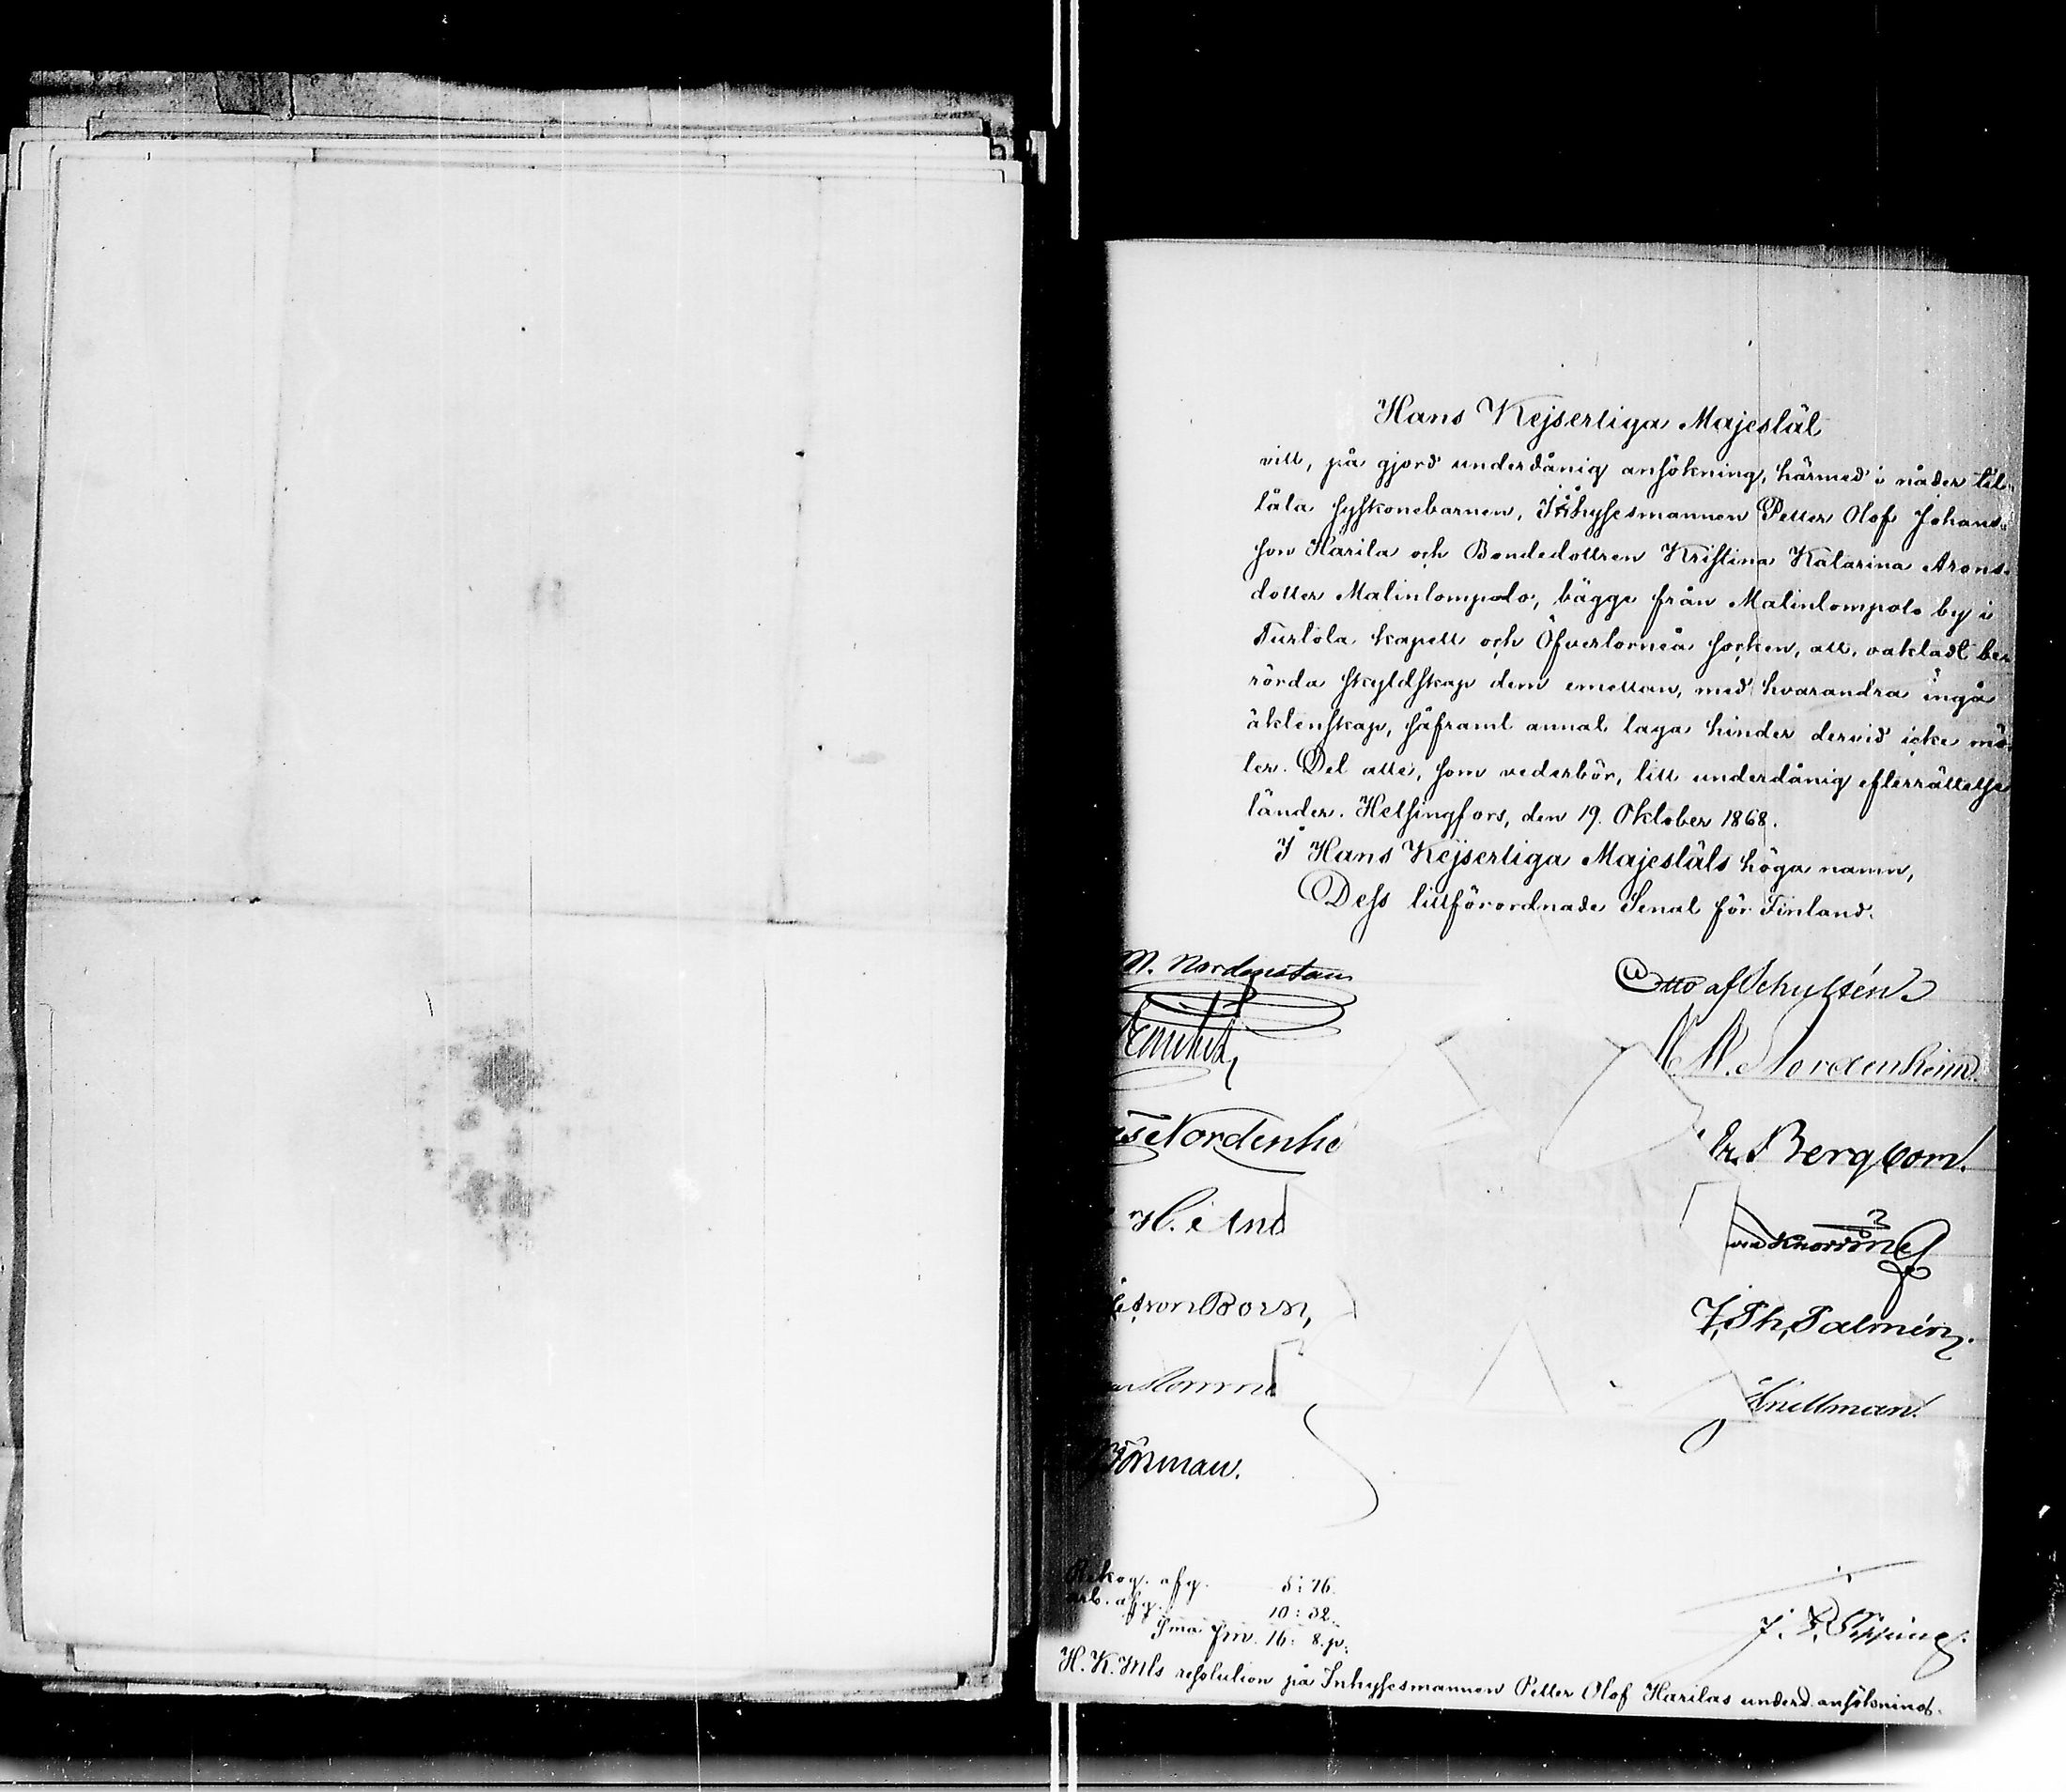 Hans Kejserliga Majestät
vill, på gjord underdånig ansökning, härmed i nåder till-
låta syskonebarnen, Inhysesmannen Petter Olof Johans-
son Harila och Bondedottren Kristina Katarina Arons-
dotter Matinlompolo, bägge från Matinlompolo by i
Turtola kapell och Öfvertorneå socken, att, oaktadt be-
rörda skyldskap dem emellan, med hvarandra ingå
äktenskap, såframt annat laga hinder dervid icke mö-
ter. Det alle, som vederbör, till underdånig efterrättelse
länder. Helsingfors, den 19. Oktober 1868.
I Hans Kejserliga Majestäts höga namn,
Dess tillförordnade Senat för Finland.
M. Nordenstam
Otto af Schultén
M. Nordenheim.
Nordenhe
Bergbom.
von Knorring
von Born,
J. Ph. Palmén.
Snellman.
Törman.
Rekog. afg. 5: 76.
arb. afg. 10: 32.
S:ma Fm. 16: 8. p.
H. K. M:ts resolution på Inhysesmannen Petter Olof Harilas underd. ansökning.